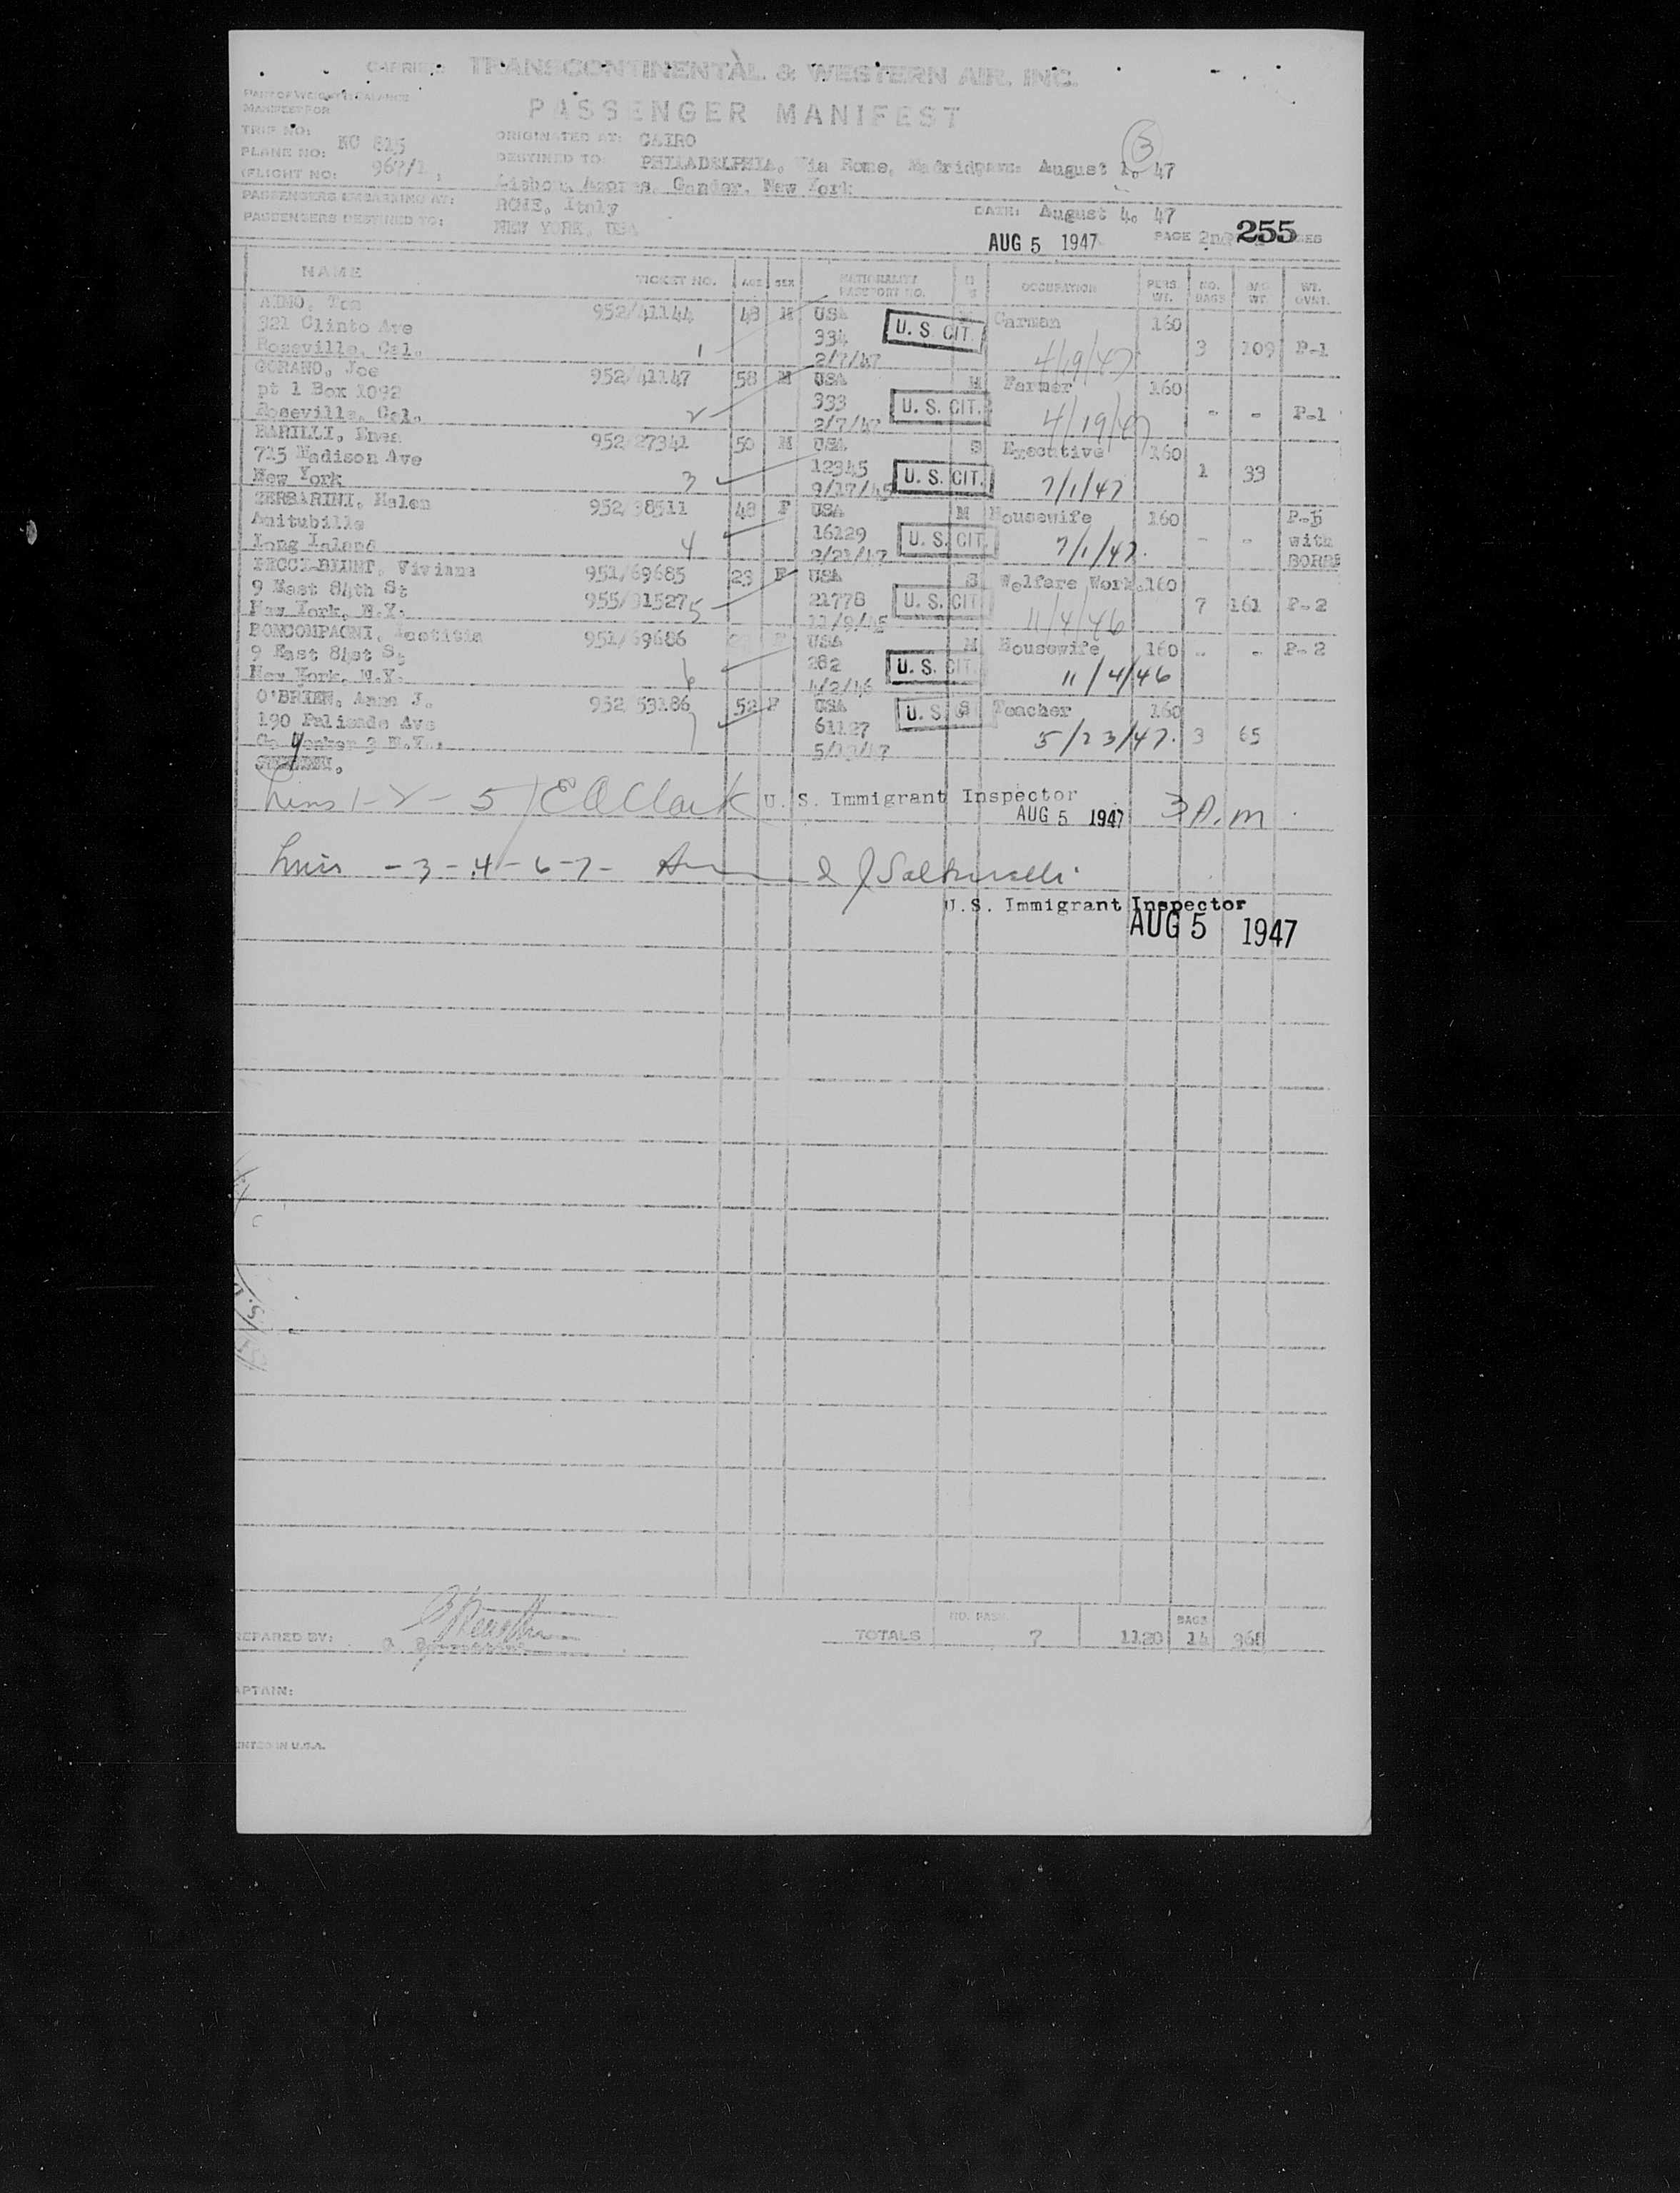 CARRIER TRANSCONTINENTAL & WESTERN AIR, INC.
PART OF WEIGHT & BALANCE
MANIFEST FOR
PASSENGER MANIFEST
TRIP NO: KC 815
ORIGINATED AT: CAIRO
3
PLANE NO: 967/1
DESTINED TO: PHILADELPHIA, Via Rome, Madrid August 1, 47
(FLIGHT NO:
Lisbon, Azores, Gander, New York
PASSENGERS EMBARKING AT: ROME, Italy
DATE: August 4, 47
PASSENGERS DESTINED TO: NEW YORK, USA
AUG 5 1947 PAGE 2nd 255
NAME TICKET NO. AGE SEX NATIONALITY PASSPORT NO. OCCUPATION PERS. WT. NO. BAGS BAG WT. WT. GVNT.
Tom 952/41144 48 M USA U. S. CIT. Carman 160
321 Clinto Ave 334 3 109 P-1
Roseville, Cal. 1 2/7/47 4/19/47
GORANO, Joe 952/41147 58 M USA M Farmer 160
pt 1 Box 1092 333 U. S. CIT. - - P-1
Roseville, Cal. 2 2/7/47 4/19/47
BARILLI, 952 27341 50 M USA S Executive 160
715 Madison Ave 12345 U. S. CIT. 1 33
New York 3 9/17/45 7/1/47
ZERBARINI, Helen 952 38511 48 F USA M Housewife 160 P-5
16129 U. S. CIT. - - with
Long Island 4 2/21/47 7/1/47.
PECCI-BLUNT, Viviana 951/69685 23 F USA S Welfare Work. 160
9 East 84th St 955/31527 5 21778 U. S. CIT 7 161 P-2
New York, N.Y. 11/9/45 11/4/46
BONCOMPAGNI, 951/69686 F USA M Housewife 160 - - P-2
9 East 84st St 282 U. S. CIT.
New York, N.Y. 6 4/2/46 11/4/46
O'BRIEN, Anne J. 952 53186 52 F USA S Teacher 160
190 Palisade Ave 61127 U. S. 3 65
Yonker 3 N.Y. 7 5/23/47.
Lines 1-2-5 / E A Clark U. S. Immigrant Inspector
AUG 5 1947 3 P.m
Lines -3-4-6-7-
U.S. Immigrant Inspector
AUG 5 1947
NO. PASS. BAGS
REPARED BY: TOTALS 7 1120 14 368
APTAIN:
INTED IN U.S.A.